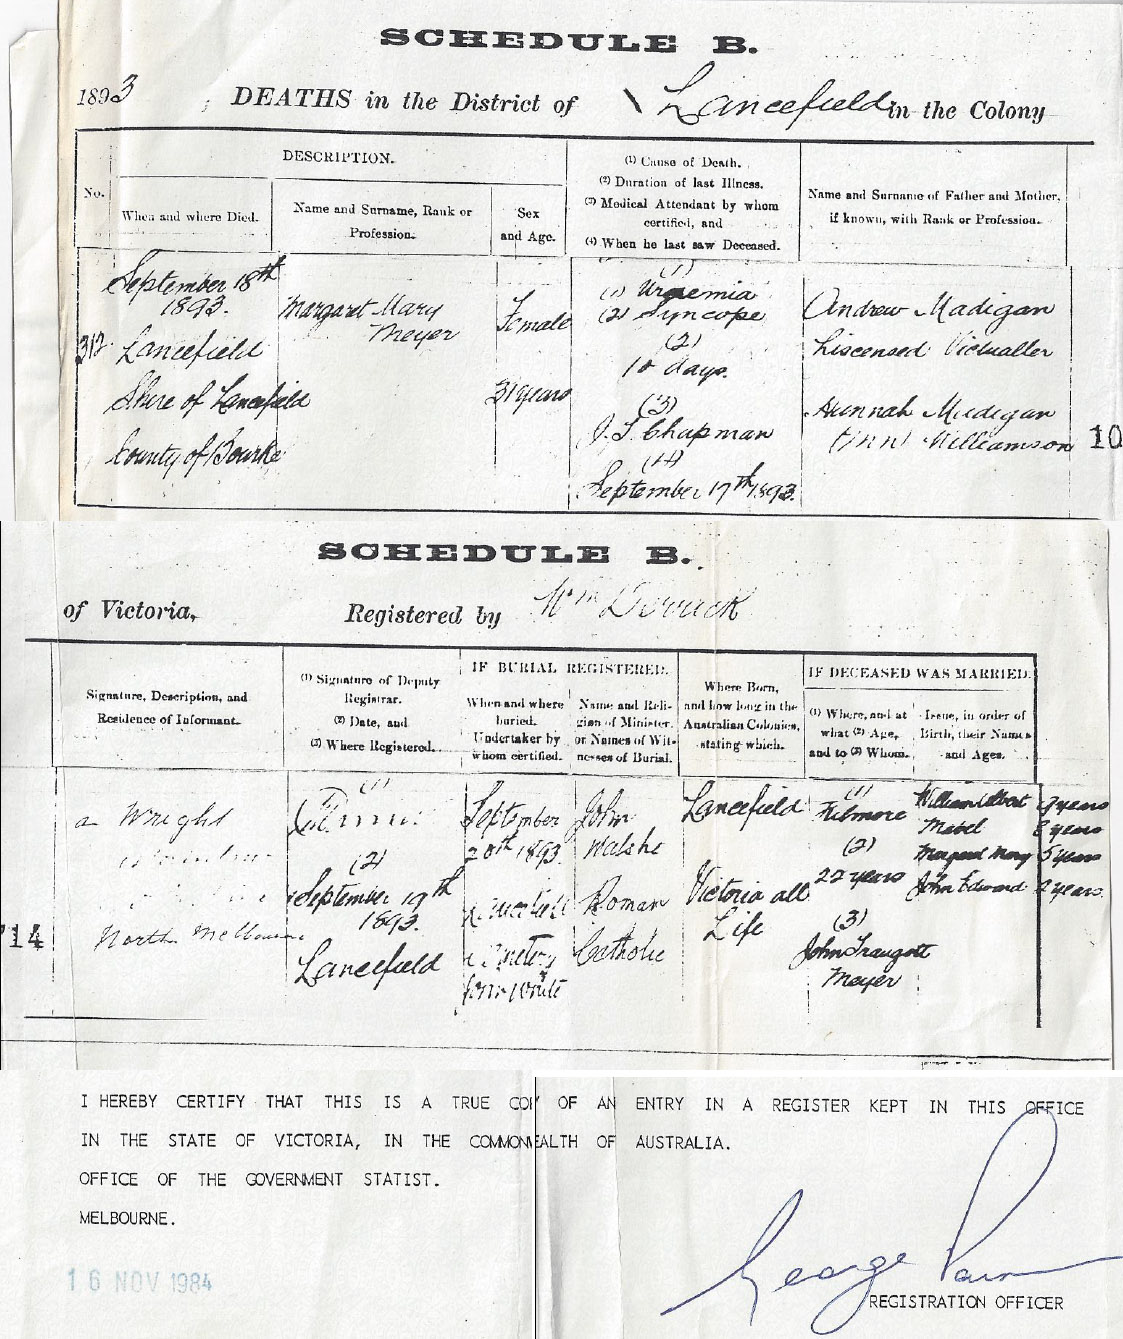 SCHEDULE B.
1893 DEATHS in the District of Lancefield in the Colony
No.
DESCRIPTION.
When and where Died.
Name and Surname, Rank or
Profession.
Sex
and Age.
(1) Cause of Death.
(2) Duration of last Illness.
(3) Medical Attendant by whom
certified, and
(4) When he last saw Deceased.
Name and Surname of Father and Mother,
if known, with Rank or Profession.
312
September 18th
1893.
Lancefield
Shire of Lancefield
County of Bourke
Margaret Mary
Meyer
Female
31 years
(1)
(1) Uraemia
(2) Syncope
(2)
10 days.
(3)
J. S. Chapman
(4)
September 17th 1893.
Andrew Madigan
Liscensed Victualler
Hannah Madigan
Williamson
10
SCHEDULE B.
of Victoria,
Registered by Wm Derrick
Signature, Description, and
Residence of Informant.
(1) Signature of Deputy
Registrar.
(2) Date, and
(3) Where Registered.
IF BURIAL REGISTERED.
When and where
buried.
Undertaker by
whom certified.
Name and Reli-
gion of Minister,
or Names of Wit-
nesses of Burial.
Where Born,
and how long in the
Australian Colonies,
stating which.
IF DECEASED WAS MARRIED.
(1) Where, and at
what (2) Age,
and to (3) Whom.
Issue, in order of
Birth, their Names
and Ages.
14
a Wright
North Melbourne
(1)
(2)
September 19th
1893.
Lancefield
September
20th 1893
John
Walshe
Roman
Catholic
Lancefield
Victoria all
Life
(1)
Kilmore
(2)
22 years
(3)
John Traugott
Meyer
William Albert 9 years
Mabel 8 years
Margaret Mary 5 years
John Edward 2 years.
I HEREBY CERTIFY THAT THIS IS A TRUE COPY OF AN ENTRY IN A REGISTER KEPT IN THIS OFFICE
IN THE STATE OF VICTORIA, IN THE COMMONWEALTH OF AUSTRALIA.
OFFICE OF THE GOVERNMENT STATIST.
MELBOURNE.
16 NOV 1984
George
REGISTRATION OFFICER